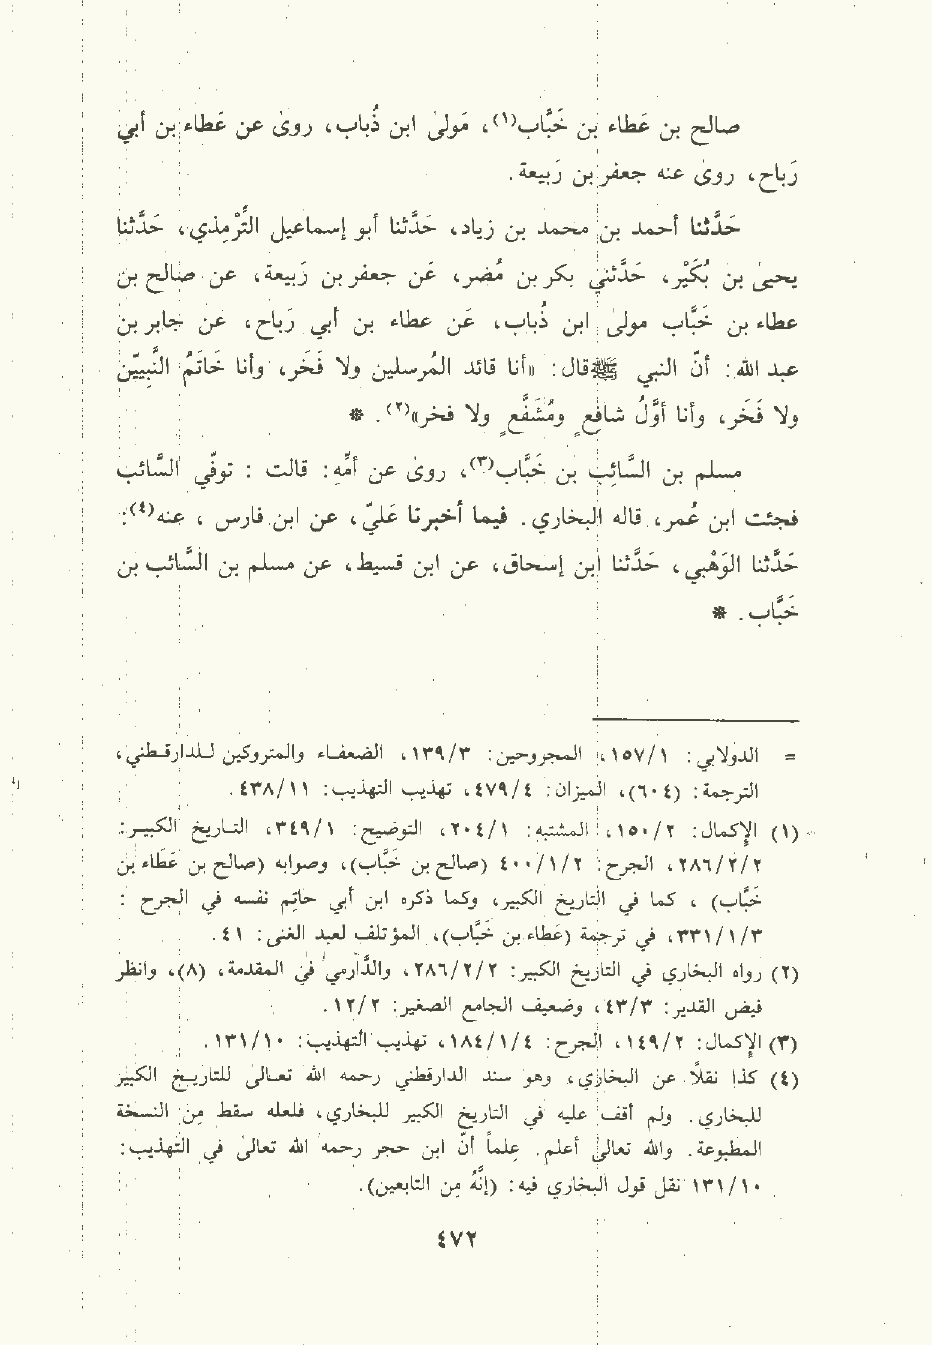 صالح بن عَطاء بن خَبَّاب(١)، مَولىٰ ابن ذُباب، روىٰ عن عَطاء بن أبي
رَباح، روىٰ عنه جعفر بن رَبيعة.
حَدَّثنا أحمد بن محمد بن زياد، حَدَّثنا أبو إسماعيل التِّرْمِذي، حَدَّثنا
يحيىٰ بن بُكَيْر، حَدَّثني بكر بن مُضر، عَن جعفر بن رَبيعة، عن صالح بن
عطاء بن خَبَّاب مولىٰ ابن ذُباب، عَن عطاء بن أبي رَباح، عن جابر بن
عبد الله: أنَّ النبي ﷺ قال: «أنا قائد المُرسلين ولا فَخَر، وأنا خَاتَمُ النَّبِيِّين
ولا فَخَر، وأنا أوَّلُ شافعٍ ومُشَفَّعٍ ولا فخر»(٢). *
مسلم بن السَّائِب بن خَبَّاب(٣)، روىٰ عن أمِّه: قالت: توفِّي السَّائب
فجئت ابن عُمر، قاله البخاري. فيما أخبرنا عَليّ، عن ابن فارس، عنه(٤):
حَدَّثنا الوَهْبي، حَدَّثنا ابن إسحاق، عن ابن قسيط، عن مسلم بن السَّائب بن
خَبَّاب. *
= الدولابي: ١/١٥٧، المجروحين: ٣/١٣٩، الضعفاء والمتروكين للدارقطني،
الترجمة: (٦٠٤)، الميزان: ٤/٤٧٩، تهذيب التهذيب: ١١/٤٣٨.
(١) الإكمال: ٢/١٥٠، المشتبه: ١/٢٠٤، التوضيح: ١/٣٤٩، التاريخ الكبير:
٢/٢/٢٨٦، الجرح: ٢/١/٤٠٠ (صالح بن خَبَّاب)، وصوابه (صالح بن عَطَاء بن
خَبَّاب) ، كما في التاريخ الكبير، وكما ذكره ابن أبي حاتِم نفسه في الجرح :
٣/١/٣٣١، في ترجمة (عَطاء بن خَبَّاب)، المؤتلف لعبد الغنى: ٤١.
(٢) رواه البخاري في التاريخ الكبير: ٢/٢/٢٨٦، والدَّارمي في المقدمة، (٨)، وانظر
فيض القدير: ٣/٤٣، وضعيف الجامع الصغير: ٢/١٢.
(٣) الإكمال: ٢/١٤٩، الجرح: ٤/١/١٨٤، تهذيب التهذيب: ١٠/١٣١.
(٤) كذا نقلاً عن البخاري، وهو سند الدارقطني رحمه الله تعالىٰ للتاريخ الكبير
للبخاري. ولم أقف عليه في التاريخ الكبير للبخاري، فلعله سقط مِن النسخة
المطبوعة. والله تعالىٰ أعلم. عِلماً أنَّ ابن حجر رحمه الله تعالىٰ في التهذيب:
١٠/١٣١ نقل قول البخاري فيه: (إنَّهُ مِن التابعين).
٤٧٢